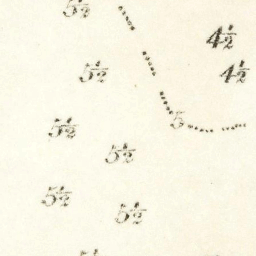 5½
4½
5½
4½
5
5½
5½
5½
5½